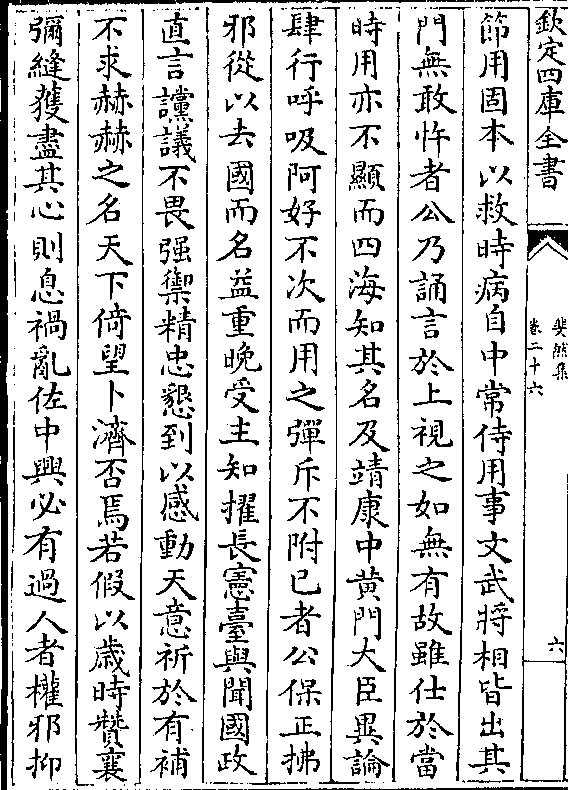 欽定四庫全書
斐然集
卷二十六
六
節用固本以救時病自中常侍用事文武將相皆出其
門無敢忤者公乃誦言於上視之如無有故雖仕於當
時用亦不顯而四海知其名及靖康中黄門大臣異論
肆行呼吸阿好不次而用之彈斥不附已者公保正拂
邪從以去國而名益重晚受主知擢長憲臺與聞國政
直言讜議不畏强禦精忠懇到以感動天意祈於有補
不求赫赫之名天下倚望卜濟否焉若假以歳時贊襄
彌縫獲盡其心則息禍亂佐中興必有過人者權邪抑